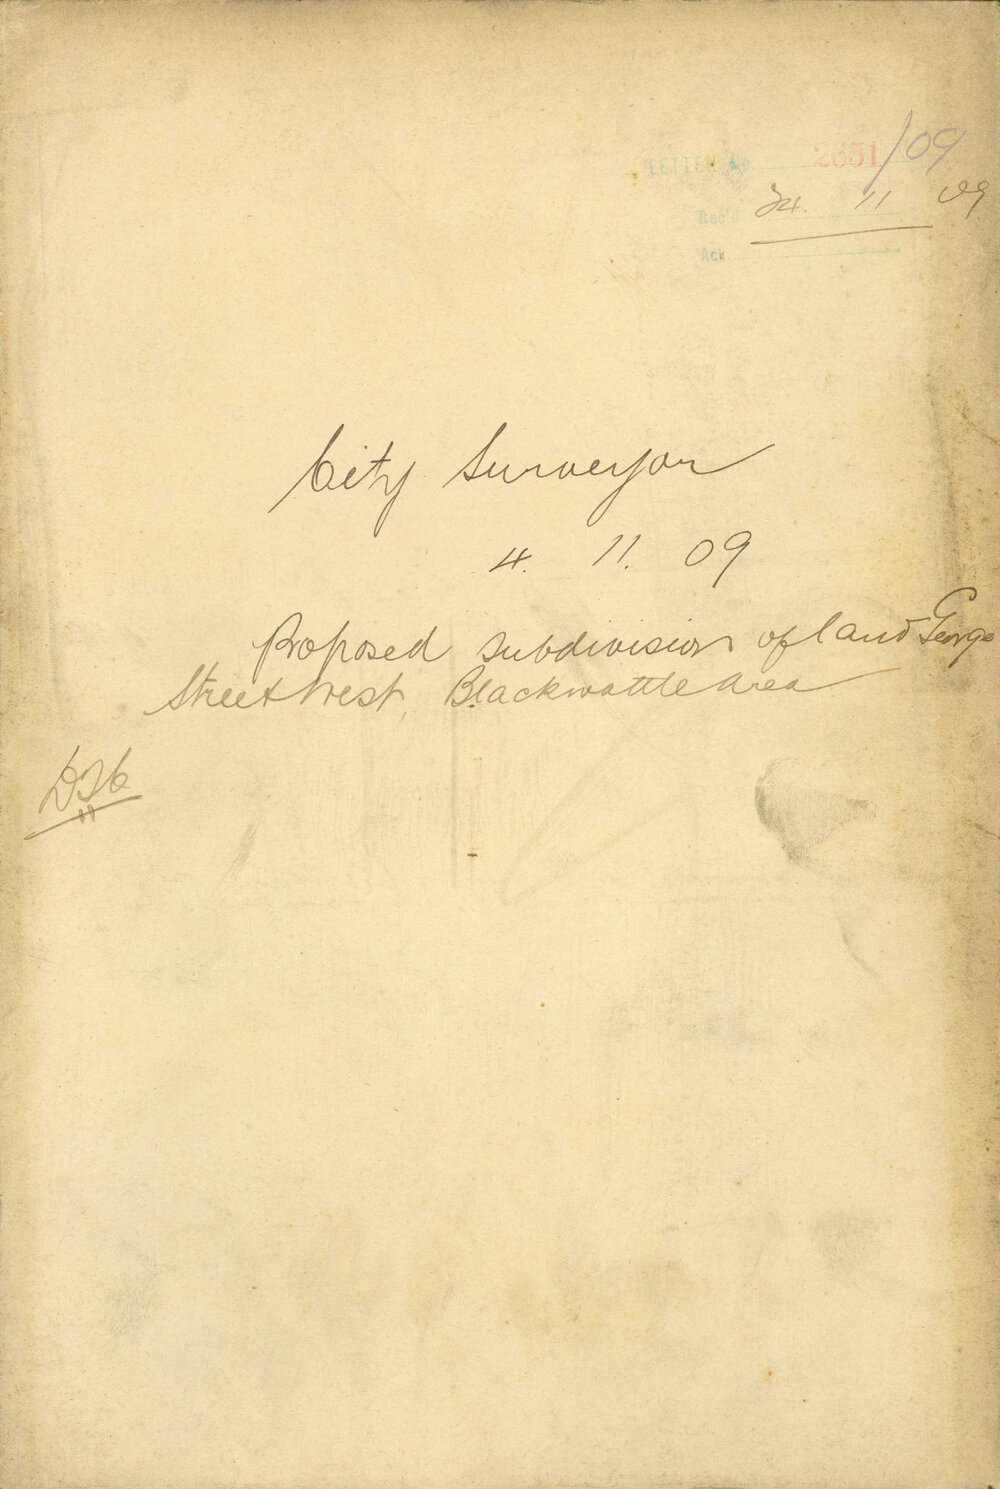 LETTER No. 2651/09
Rec'd 24. 11 09
Ack
City Surveyor
4. 11. 09
Proposed subdivision of land George
Street West, Blackwattle Area